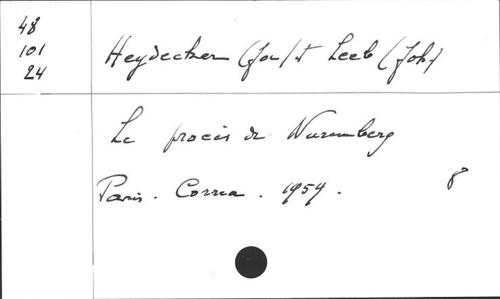 48
101
24
Heydecker (Joe) et Leeb (Joh)
Le procès de Nuremberg
Paris. Correa. 1959.
8